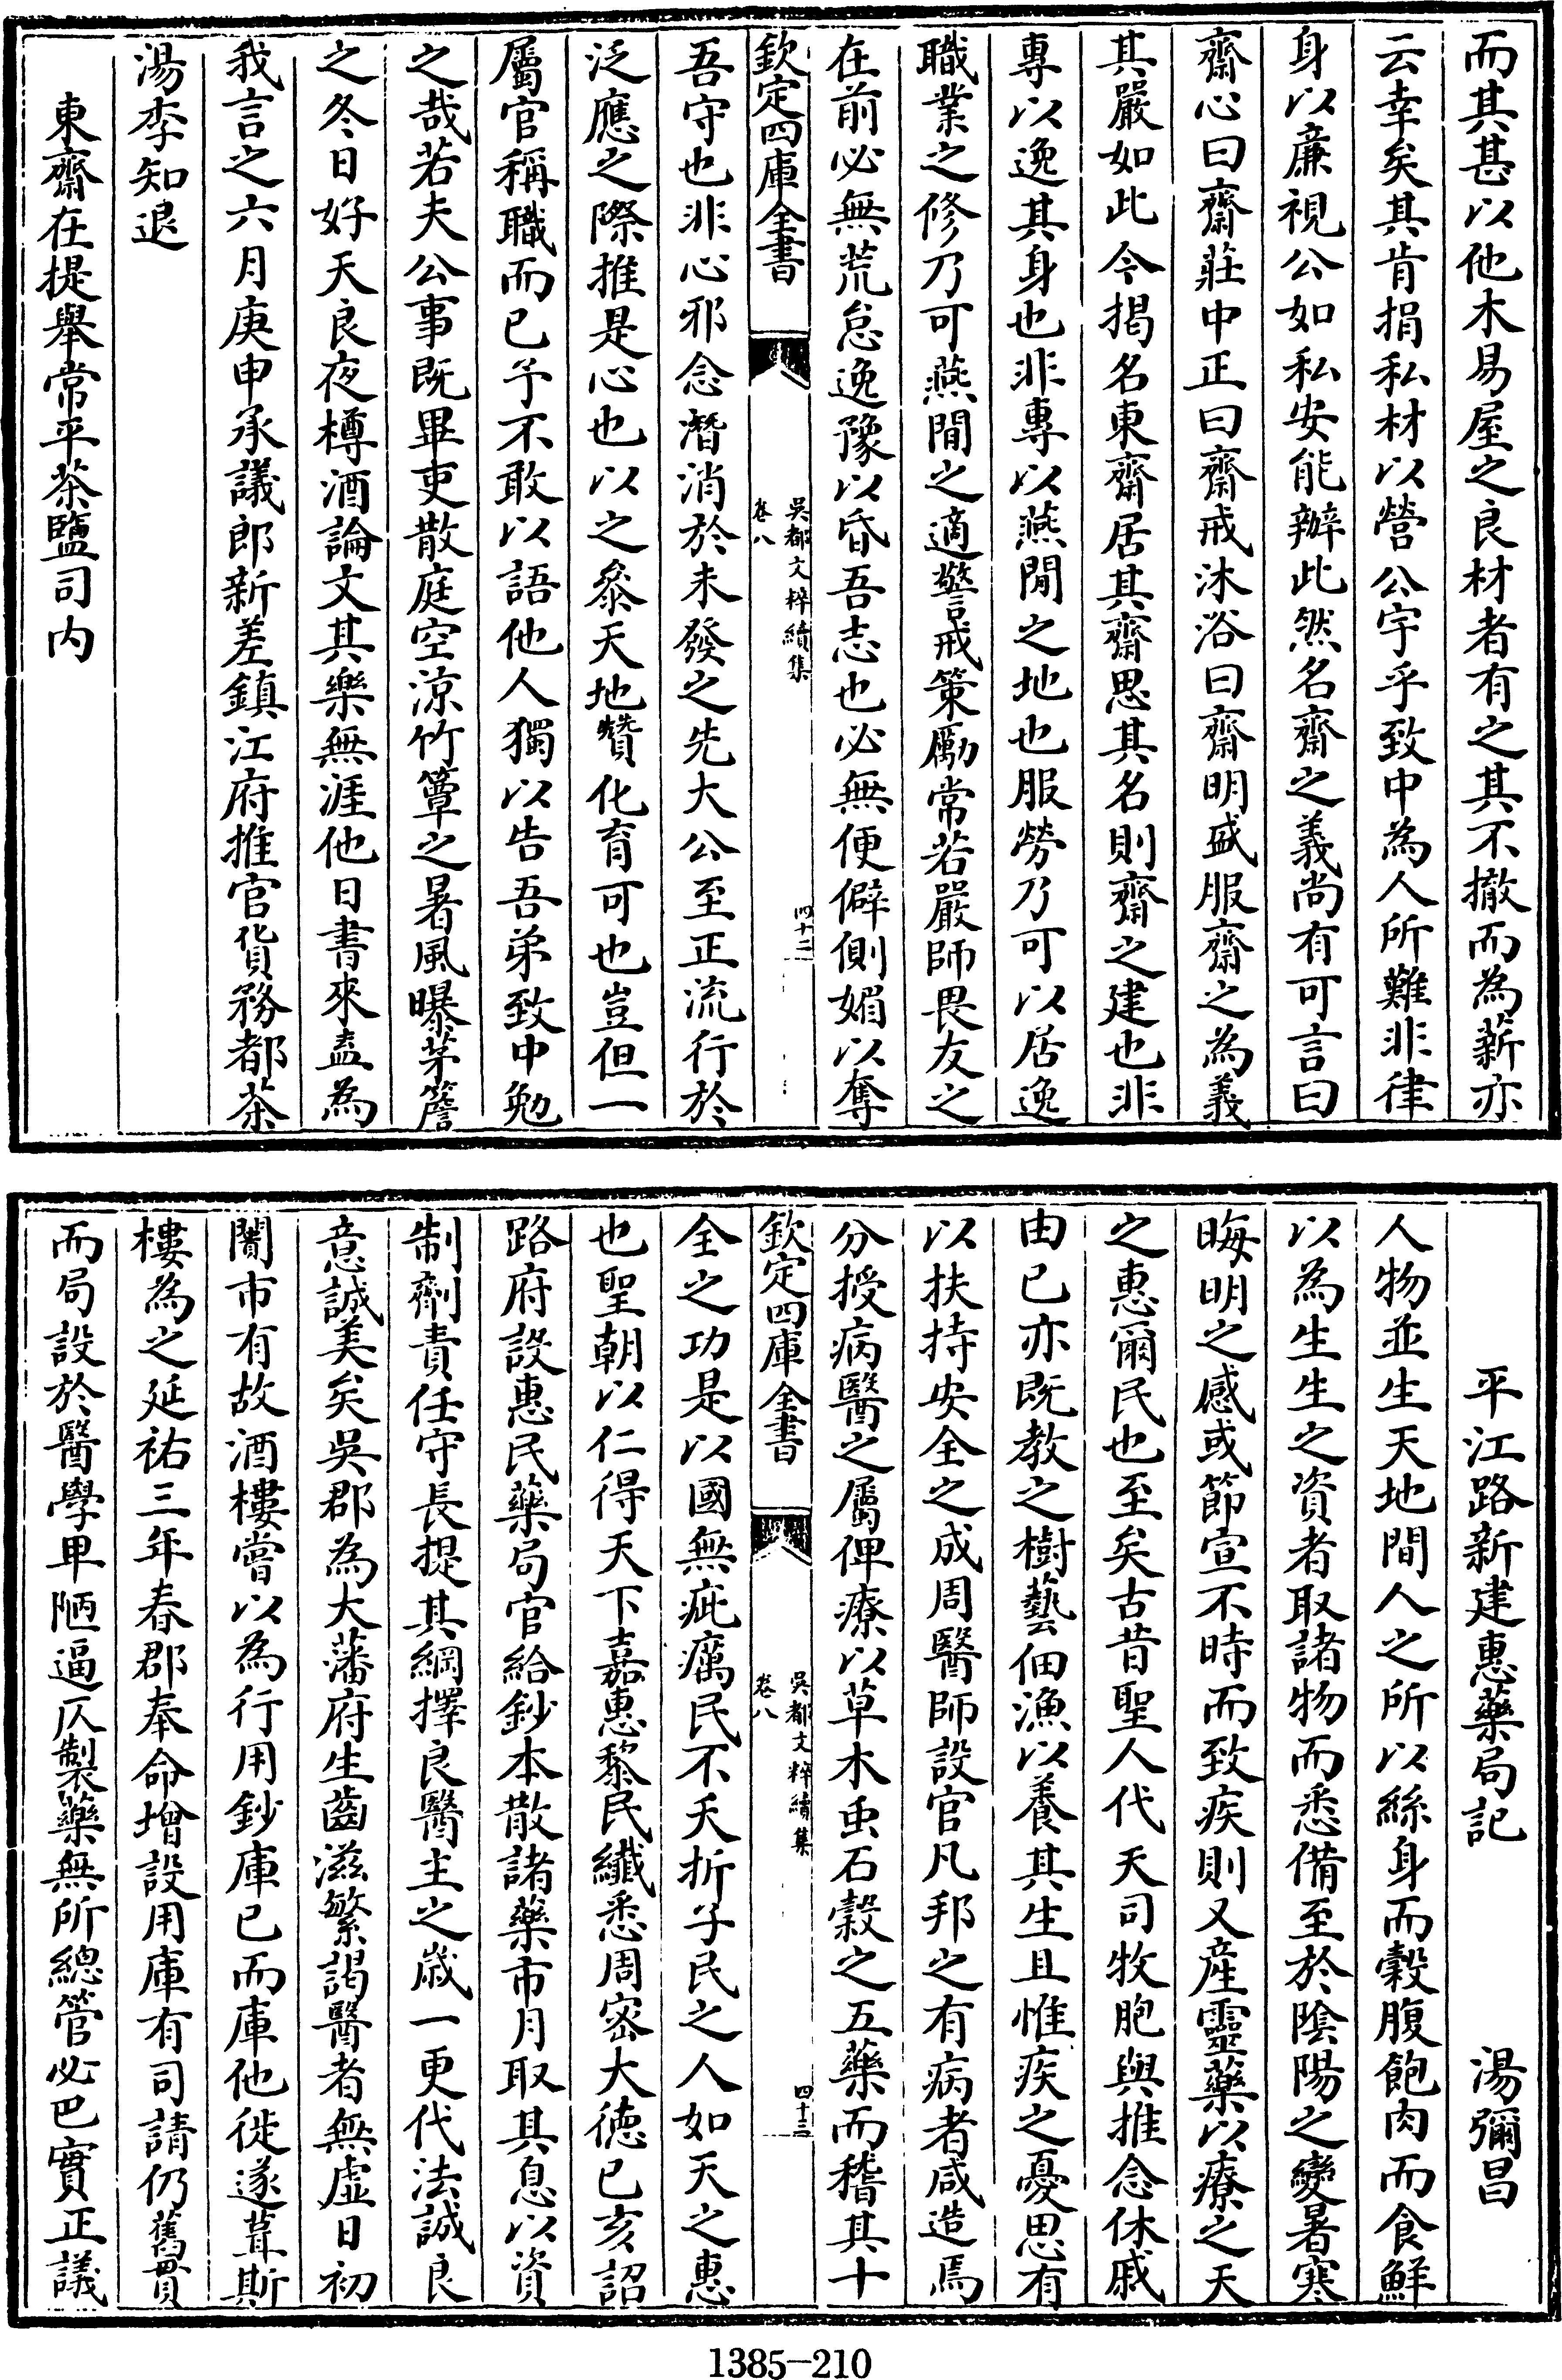 而其甚以他木易屋之良材者有之其不撤而為薪亦
云幸矣其肯捐私材以營公宇乎致中為人所難非律
身以廉視公如私安能辦此然名齋之義尚有可言曰
齋心曰齋莊中正曰齋戒沐浴曰齋明盛服齋之為義
其嚴如此今揭名東齋居其齋思其名則齋之建也非
專以逸其身也非專以燕閒之地也服勞乃可以居逸
職業之修乃可燕閒之適警戒策勵常若嚴師畏友之
在前必無荒怠逸豫以昏吾志也必無便僻側媚以奪
欽定四庫全書
吳都文粹續集
卷八
四十二
吾守也非心邪念潛消於未發之先大公至正流行於
泛應之際推是心也以之叅天地贊化育可也豈但一
屬官稱職而已予不敢以語他人獨以告吾弟致中勉
之哉若夫公事既畢吏散庭空涼竹簟之暑風曝茅簷
之冬日好天良夜樽酒論文其樂無涯他日書來盍為
我言之六月庚申承議郎新差鎮江府推官貨務都茶
湯李知退
東齋在提舉常平茶鹽司内
平江路新建惠藥局記 湯彌昌
人物並生天地間人之所以絲身而穀腹飽肉而食鮮
以為生生之資者取諸物而悉備至於陰陽之變暑寒
晦明之感或節宣不時而致疾則又産靈藥以療之天
之惠爾民也至矣古昔聖人代天司牧胞與推念休戚
由已亦既教之樹藝佃漁以養其生且惟疾之憂思有
以扶持安全之成周醫師設官凡邦之有病者咸造焉
分授病醫之屬俾療以草木虫石穀之五藥而稽其十
欽定四庫全書
吳都文粹續集
卷八
四十三
全之功是以國無疵癘民不夭折子民之人如天之惠
也聖朝以仁得天下嘉惠黎民纖悉周密大徳已亥詔
路府設惠民藥局官給鈔本散諸藥市月取其息以資
制劑責任守長提其綱擇良醫主之嵗一更代法誠良
意誠美矣吳郡為大藩府生齒滋繁謁醫者無虛日初
闤市有故酒樓嘗以為行用鈔庫已而庫他徙遂葺斯
樓為之延祐三年春郡奉命增設用庫有司請仍舊貫
而局設於醫學卑陋逼仄製藥無所總管必巴實正議
1385-210